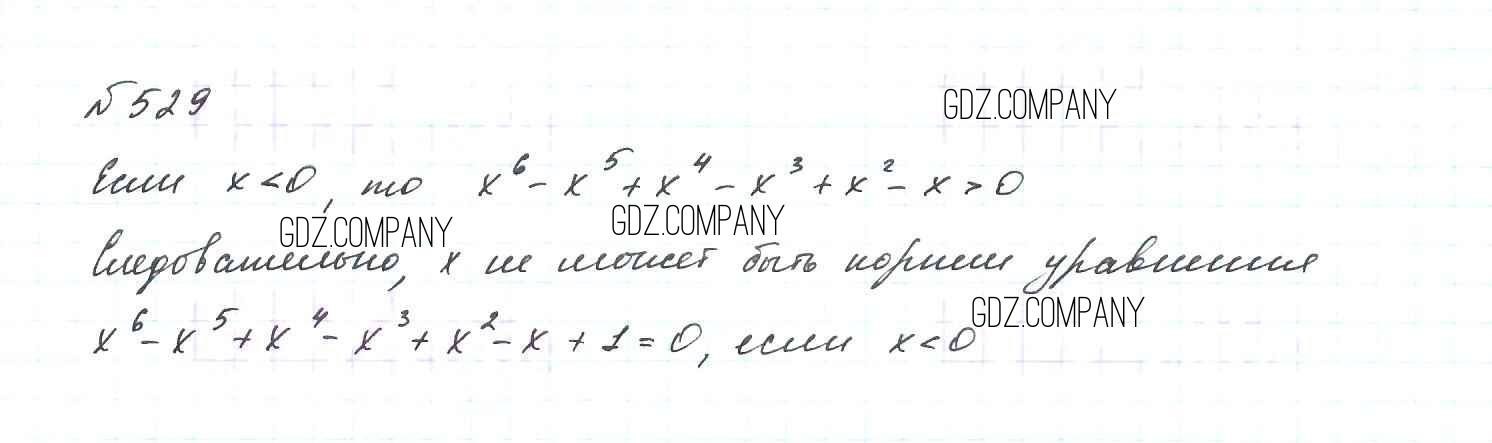 № 529
GDZ.COMPANY
Если x < 0, то x⁶ - x⁵ + x⁴ - x³ + x² - x > 0
GDZ.COMPANY
GDZ.COMPANY
Следовательно, x не может быть корнем уравнения
GDZ.COMPANY
x⁶ - x⁵ + x⁴ - x³ + x² - x + 1 = 0, если x < 0